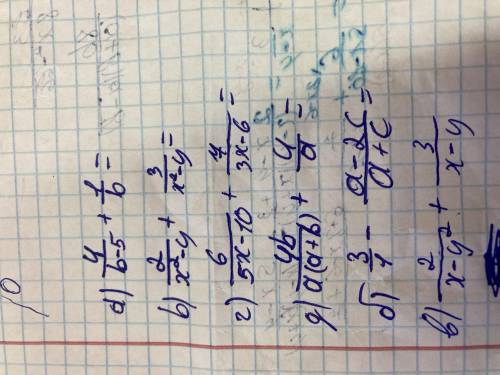 10
а) 4/b-5 + 1/b =
б) 2/x²-y + 3/x²-y =
г) 6/5x-10 + 7/3x-6 =
д) 4b/a(a+b) + 4/a =
б) 3/1 - a-2c/a+c =
в) 2/x-y² + 3/x-y